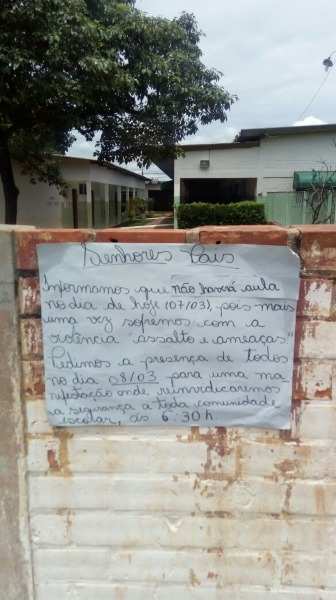 Senhores Pais
Informamos que não haverá aula
no dia de hoj (07/03), pois mais
uma vez sofremos com a
violência "assalto e ameaças"
Pedimos a presença de todos
no dia 08/03 para uma ma-
nifestação onde reinvidicaremos
a segurança a toda comunidade
escolar, às 6:30h